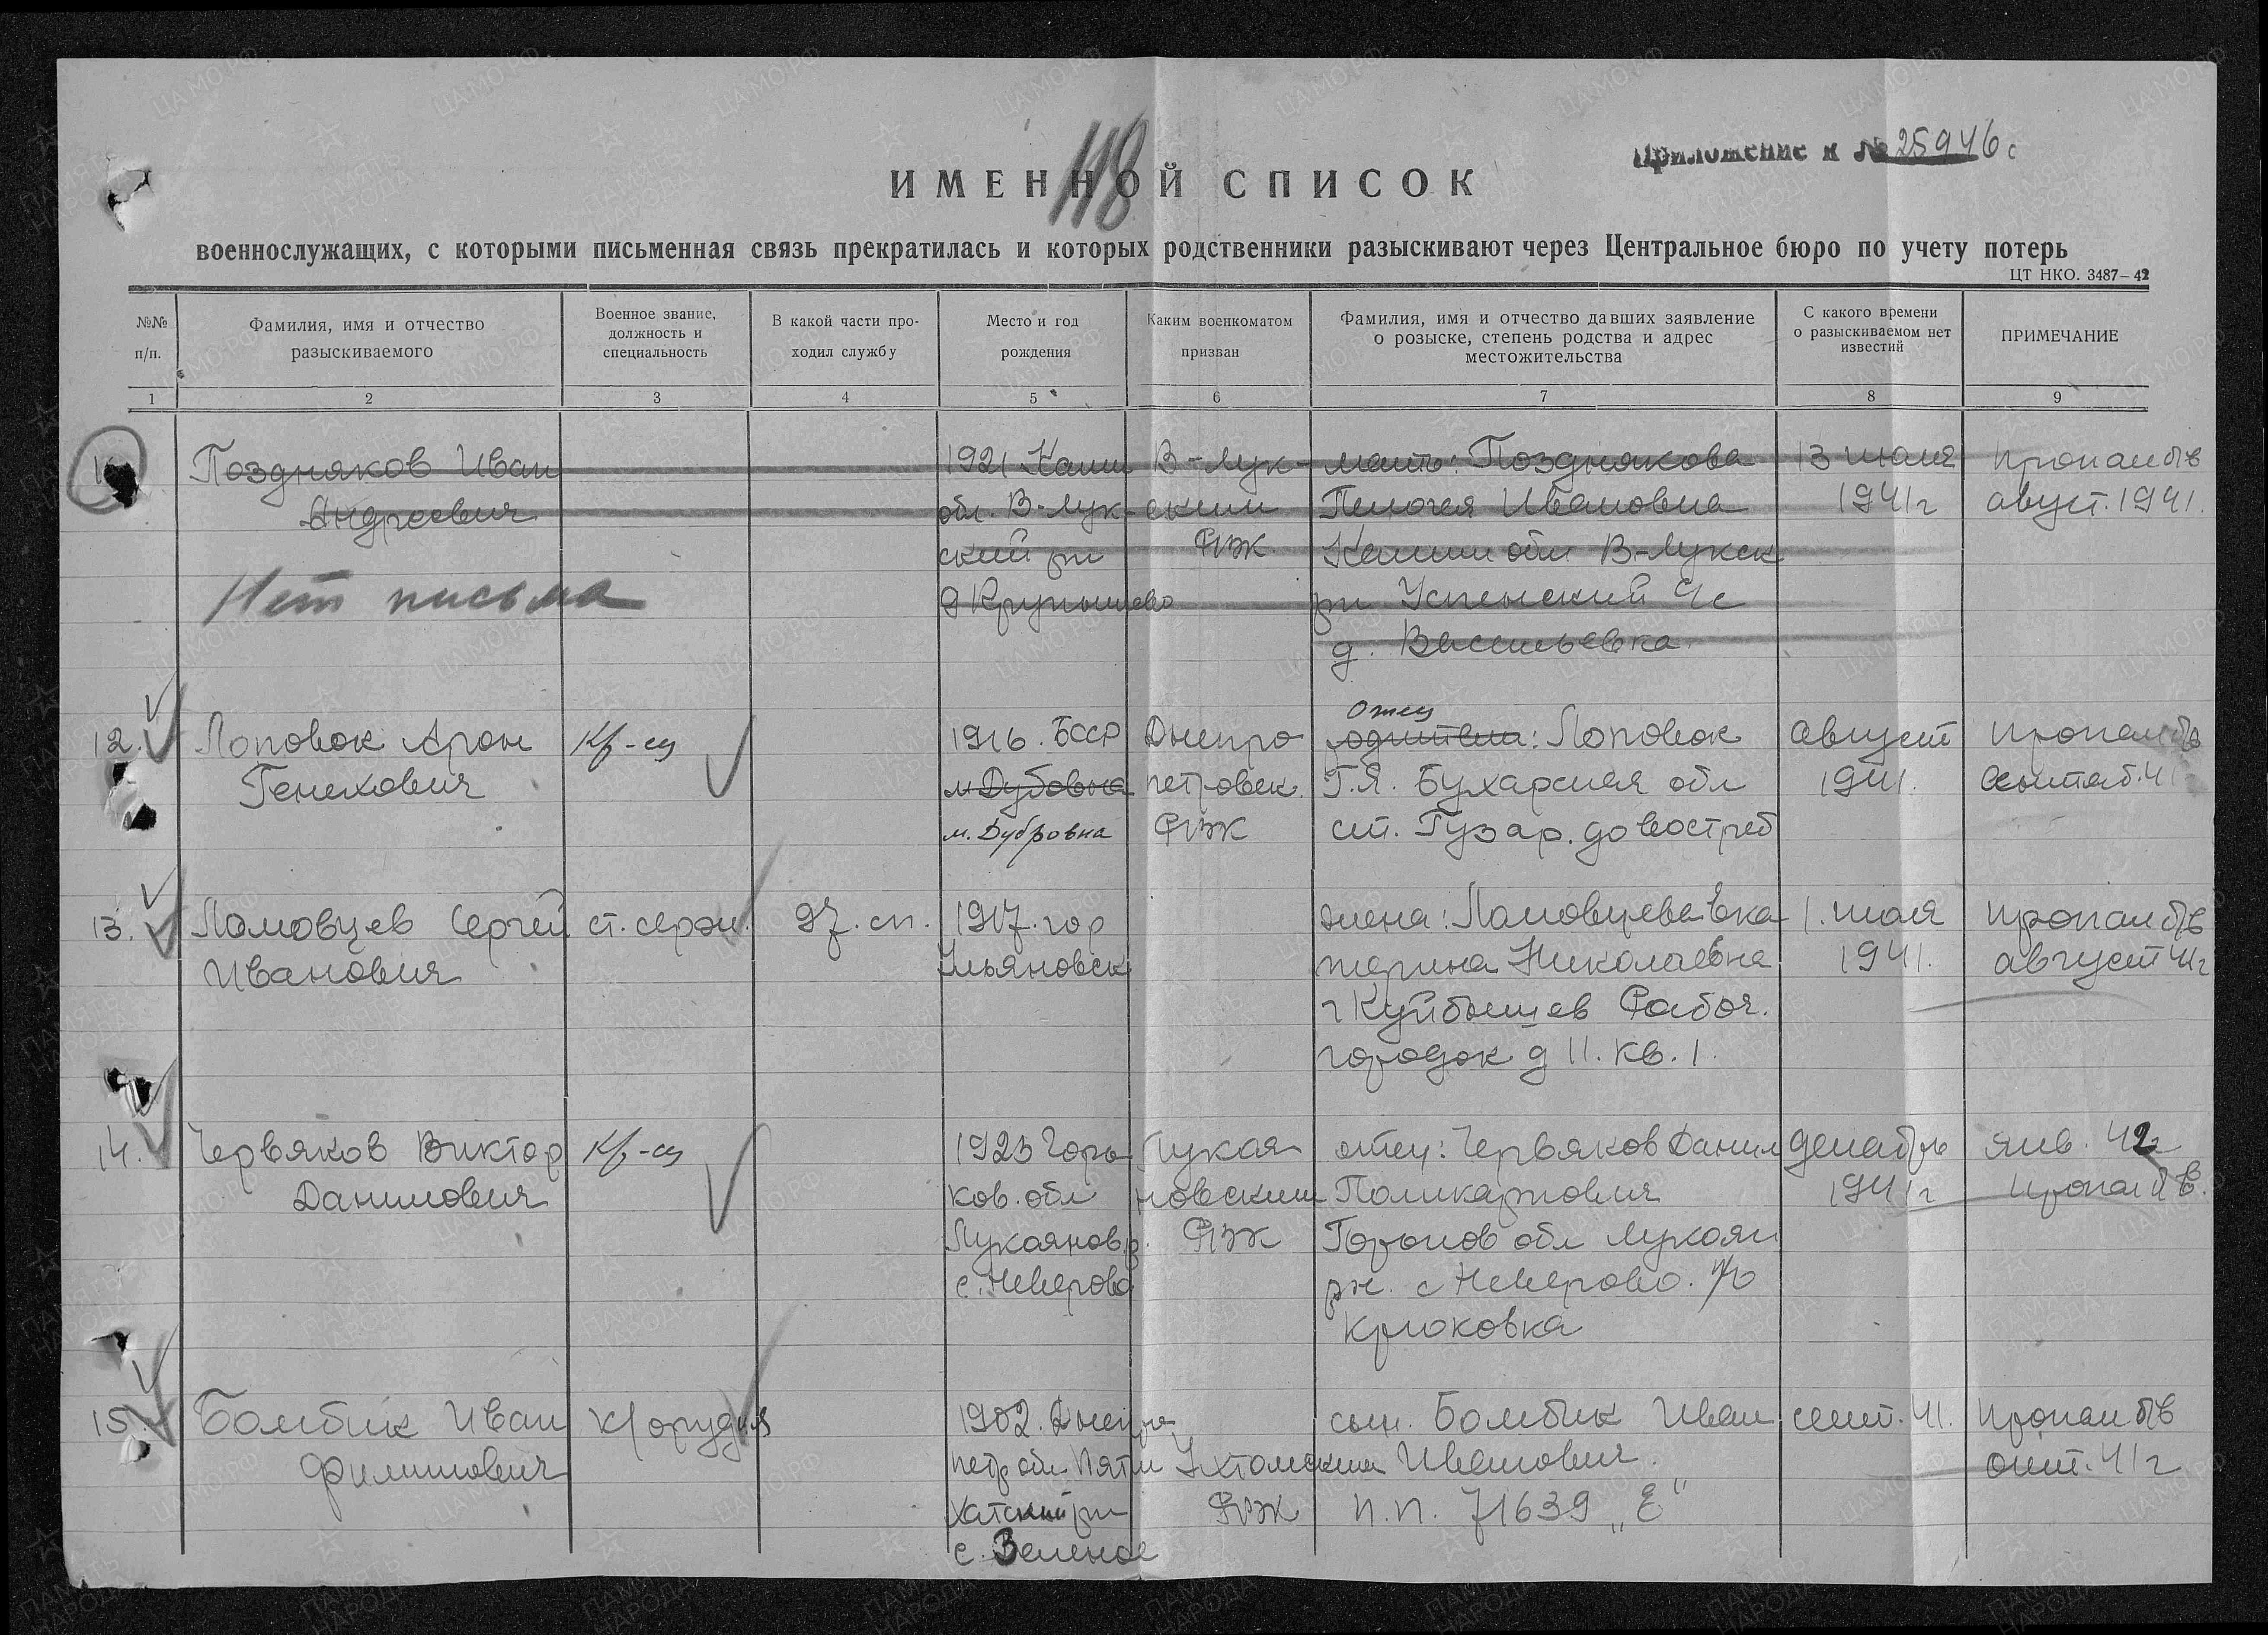 Приложение к № 25946 с
118
ИМЕННОЙ СПИСОК
военнослужащих, с которыми письменная связь прекратилась и которых родственники разыскивают через Центральное бюро по учету потерь
ЦТ НКО. 3487–42
№№ п/п.
Фамилия, имя и отчество разыскиваемого
Военное звание, должность и специальность
В какой части проходил службу
Место и год рождения
Каким военкоматом призван
Фамилия, имя и отчество давших заявление о розыске, степень родства и адрес местожительства
С какого времени о разыскиваемом нет известий
ПРИМЕЧАНИЕ
1 2 3 4 5 6 7 8 9
Поздняков Иван 1921 Калин В-Лук- мать: Позднякова 13 июля пропал б/в
Андреевич обл. В-Лук- ским Пелагея Ивановна 1941г август. 1941.
ский рн РВК Калин обл В-Лукск
Нет письма д Крупышево рн Успенский с/с
д. Васильевка
отец
12. Лоповок Арон Кр-ец 1916. БССР Днепро родители: Лоповок август пропал б/в
Генехович м Дубовна петровск. Г.Я. Бухарская обл 1941. сентяб. 41
м. Дубровна РВК ст. Гузар. до востреб
13. Ламовцев Сергей ст. серж. 97. сп. 1917. гор жена: Ламовцева Ека 1. июля пропал б/в
Иванович Ульяновск терина Николаевна 1941. август 41г
г Куйбышев Рабоч.
городок д 11. кв. 1.
14. Червяков Виктор Кр-ец 1923 Горь Лукоя отец: Червяков Данил декабрь янв. 42г
Данилович ков. обл новским Поликарпович 1941г пропал б/в.
Лукоянов р. РВК Горьков обл Лукоян
с. Неверово рн. с Неверово. п/о
Крюковка
15. Бомбик Иван к/орудия 1902. Днепро сын. Бомбик Иван сент. 41. пропал б/в
Филиппович петр обл Пяти Ухтомским Иванович. окт. 41г
хатский рн РВК п.п. 71639 „Е"
с. Зеленое